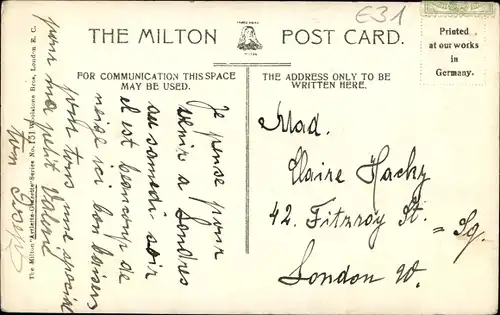 E31
THE MILTON POST CARD.
Printed
at our works
in
Germany.
FOR COMMUNICATION THIS SPACE
MAY BE USED.
THE ADDRESS ONLY TO BE
WRITTEN HERE.
Je pense pour
venir a Londres
au samedi soir
el est beaucoup de
neige ici bon baisers
pour tous une special
pour ma petit
ton
Mad.
Claire Hacky
42. Fitzroy St.
= Sq.
London W.
The Milton "Artlette-Glosette" Series No. 151 Woolstone Bros, London E.C.